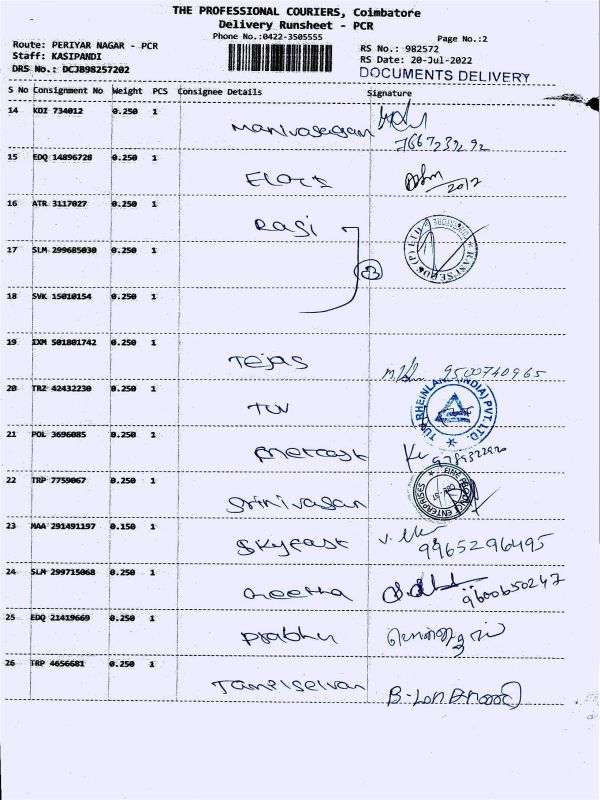 THE PROFESSIONAL COURIERS, Coimbatore
Delivery Runsheet - PCR
Phone No.:0422-3505555
Page No.:2
Route: PERIYAR NAGAR - PCR
RS No.: 982572
Staff: KASIPANDI
RS Date: 20-Jul-2022
DRS No.: DCJB98257202
DOCUMENTS DELIVERY
S No Consignment No Weight PCS Consignee Details Signature
14 KDI 734012 0.250 1
Manivasagan
15 EDQ 14896728 0.250 1
20/7
16 ATR 3117027 0.250 1
Rasi
17 SLM 299685030 0.250 1
18 SVK 15010154 0.250 1
19 IXM 501801742 0.250 1
Tejas 9500740965
20 TRZ 42432230 0.250 1
TUV
TUV RHEINLAND (INDIA) PVT. LTD.
21 POL 3696085 0.250 1
22 TRP 7759067 0.250 1
Srinivasan
ENTERPRISES
23 MAA 291491197 0.150 1
Skyfast 9965296495
24 SLM 299715068 0.250 1
Geetha 9600650247
25 EDQ 21419669 0.250 1
Prabhu
26 TRP 4656681 0.250 1
Tamilselvan